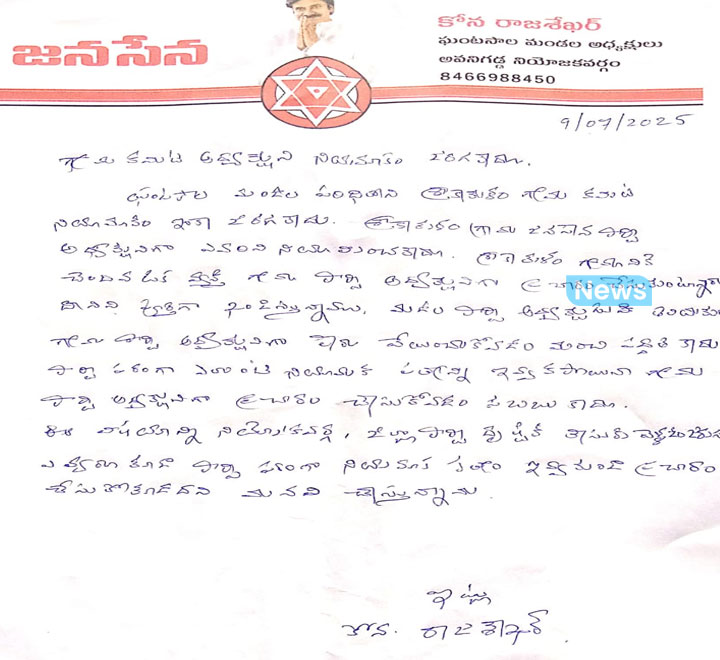 జనసేన
కోన రాజశేఖర్
ఘంటసాల మండల అధ్యక్షులు
అవనిగడ్డ నియోజకవర్గం
8466988450
9/07/2025
గ్రామ కమిటి అధ్యక్షుని నియామకం జరగలేదు.
ఘంటసాల మండల పరిధిలోని శ్రీకాకుళం గ్రామ కమిటి
నియామకం ఇంకా జరగలేదు. శ్రీకాకుళం గ్రామ జనసేన పార్టి
అధ్యక్షునిగా ఎవరిని నియమించలేదు. శ్రీకాకుళం గ్రామానికి
చెందిన ఒక వ్యక్తి గ్రామ పార్టి అధ్యక్షునిగా ప్రచారం చేసుకుంటున్నారు
దీనిని పూర్తిగా ఖండిస్తున్నాము. మండల పార్టి అధ్యక్షునికి
గ్రామ పార్టి అధ్యక్షునిగా మంచి పద్ధతి కాదు
పార్టి పరంగా ఎటువంటి నియామక పత్రాన్ని ఇవ్వకపోయినా గ్రామ
పార్టి అధ్యక్షునిగా ప్రచారం చేసుకోవడం సబబు కాదు.
ఈ విషయాన్ని నియోజకవర్గ, జిల్లా పార్టి దృష్టికి
ఎవ్వరు కూడా పార్టి పరంగా నియామక పత్రం ఇవ్వకుండా ప్రచారం
చేసుకోకూడదని మనవి చేస్తున్నాము.
ఇట్లు
కోన. రాజశేఖర్
News